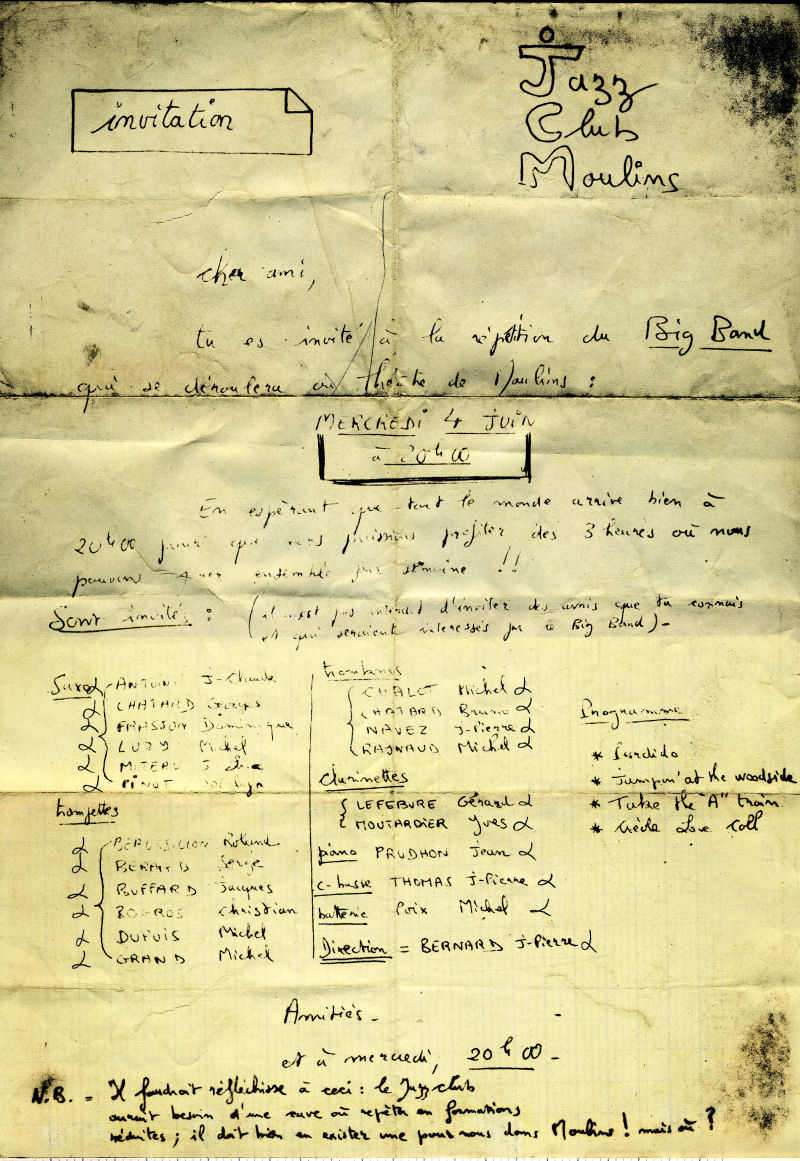 invitation
Jazz
Club
Moulins
cher ami,
tu es invité à la répétition du Big Band
qui se déroulera au théâtre de Moulins :
MERCREDI 4 JUIN
à 20h00
En espérant que tout le monde arrive bien à
20h00 pour que nous puissions profiter des 3 heures où nous
pouvons ensemble par semaine !!
Sont invités : (il n'est pas interdit d'inviter des amis que tu connais
et qui seraient intéressés par le Big Band)-
Saxo
ANTOINE J-Claude
CHATARD Georges
FRASSON Dominique
LUZY Michel
MITEAU
PINOT
trompettes
Roland
BERNARD Serge
BOUFFARD Jacques
BOGROS Christian
DUPUIS Michel
GRAND Michel
trombones
CHALOT Michel
CHATARD Bruno
NAVEZ J-Pierre
RAYNAUD Michel
clarinettes
LEFEBURE Gérard
MOUTARDIER Yves
piano PRUDHON Jean
c-basse THOMAS J-Pierre
batterie POIX Michel
Direction = BERNARD J-Pierre
Programme
* Perdido
* Jumpin' at the woodside
* Take the "A" train
* Créole Love Call
Amitiés -
et à mercredi, 20h00 -
N.B. = Il faudrait réfléchisse à ceci : le Jazz club
aurait besoin d'une cave où repéter en formations
réduites ; il doit bien en exister une pour nous dans Moulins ! mais où ?